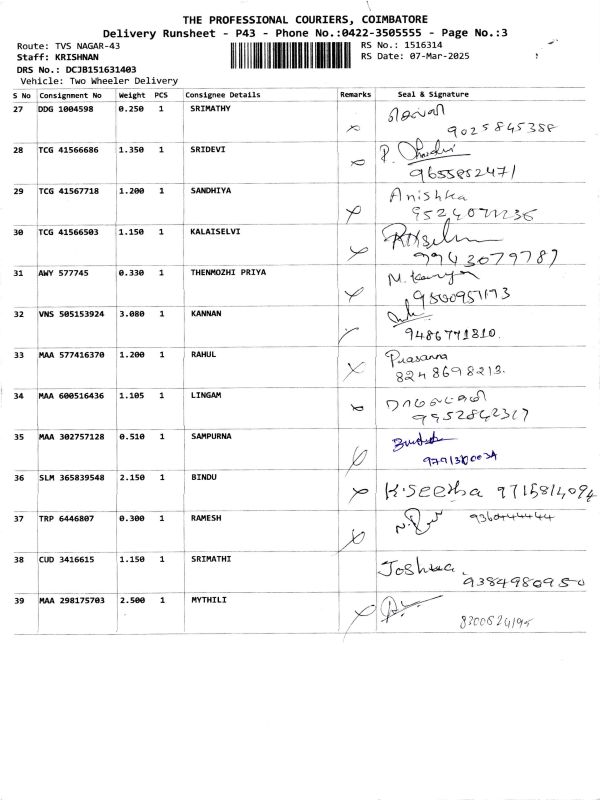 THE PROFESSIONAL COURIERS, COIMBATORE
Delivery Runsheet - P43 - Phone No.:0422-3505555 - Page No.:3
Route: TVS NAGAR-43
RS No.: 1516314
Staff: KRISHNAN
RS Date: 07-Mar-2025
DRS No.: DCJB151631403
Vehicle: Two Wheeler Delivery
S No Consignment No Weight PCS Consignee Details Remarks Seal & Signature
27 DDG 1004598 0.250 1 SRIMATHY செல்வி
9025845358
28 TCG 41566686 1.350 1 SRIDEVI P.
9655852471
29 TCG 41567718 1.200 1 SANDHIYA Anishka
30 TCG 41566503 1.150 1 KALAISELVI
9943079789
31 AWY 577745 0.330 1 THENMOZHI PRIYA M.
9500951173
32 VNS 505153924 3.080 1 KANNAN
9486771810.
33 MAA 577416370 1.200 1 RAHUL Prasanna
8248698213.
34 MAA 600516436 1.105 1 LINGAM
9952842317
35 MAA 302757128 0.510 1 SAMPURNA
36 SLM 365839548 2.150 1 BINDU K.Seetha 9715814094
37 TRP 6446807 0.300 1 RAMESH 9360444444
38 CUD 3416615 1.150 1 SRIMATHI Joshika.
9384980950
39 MAA 298175703 2.500 1 MYTHILI